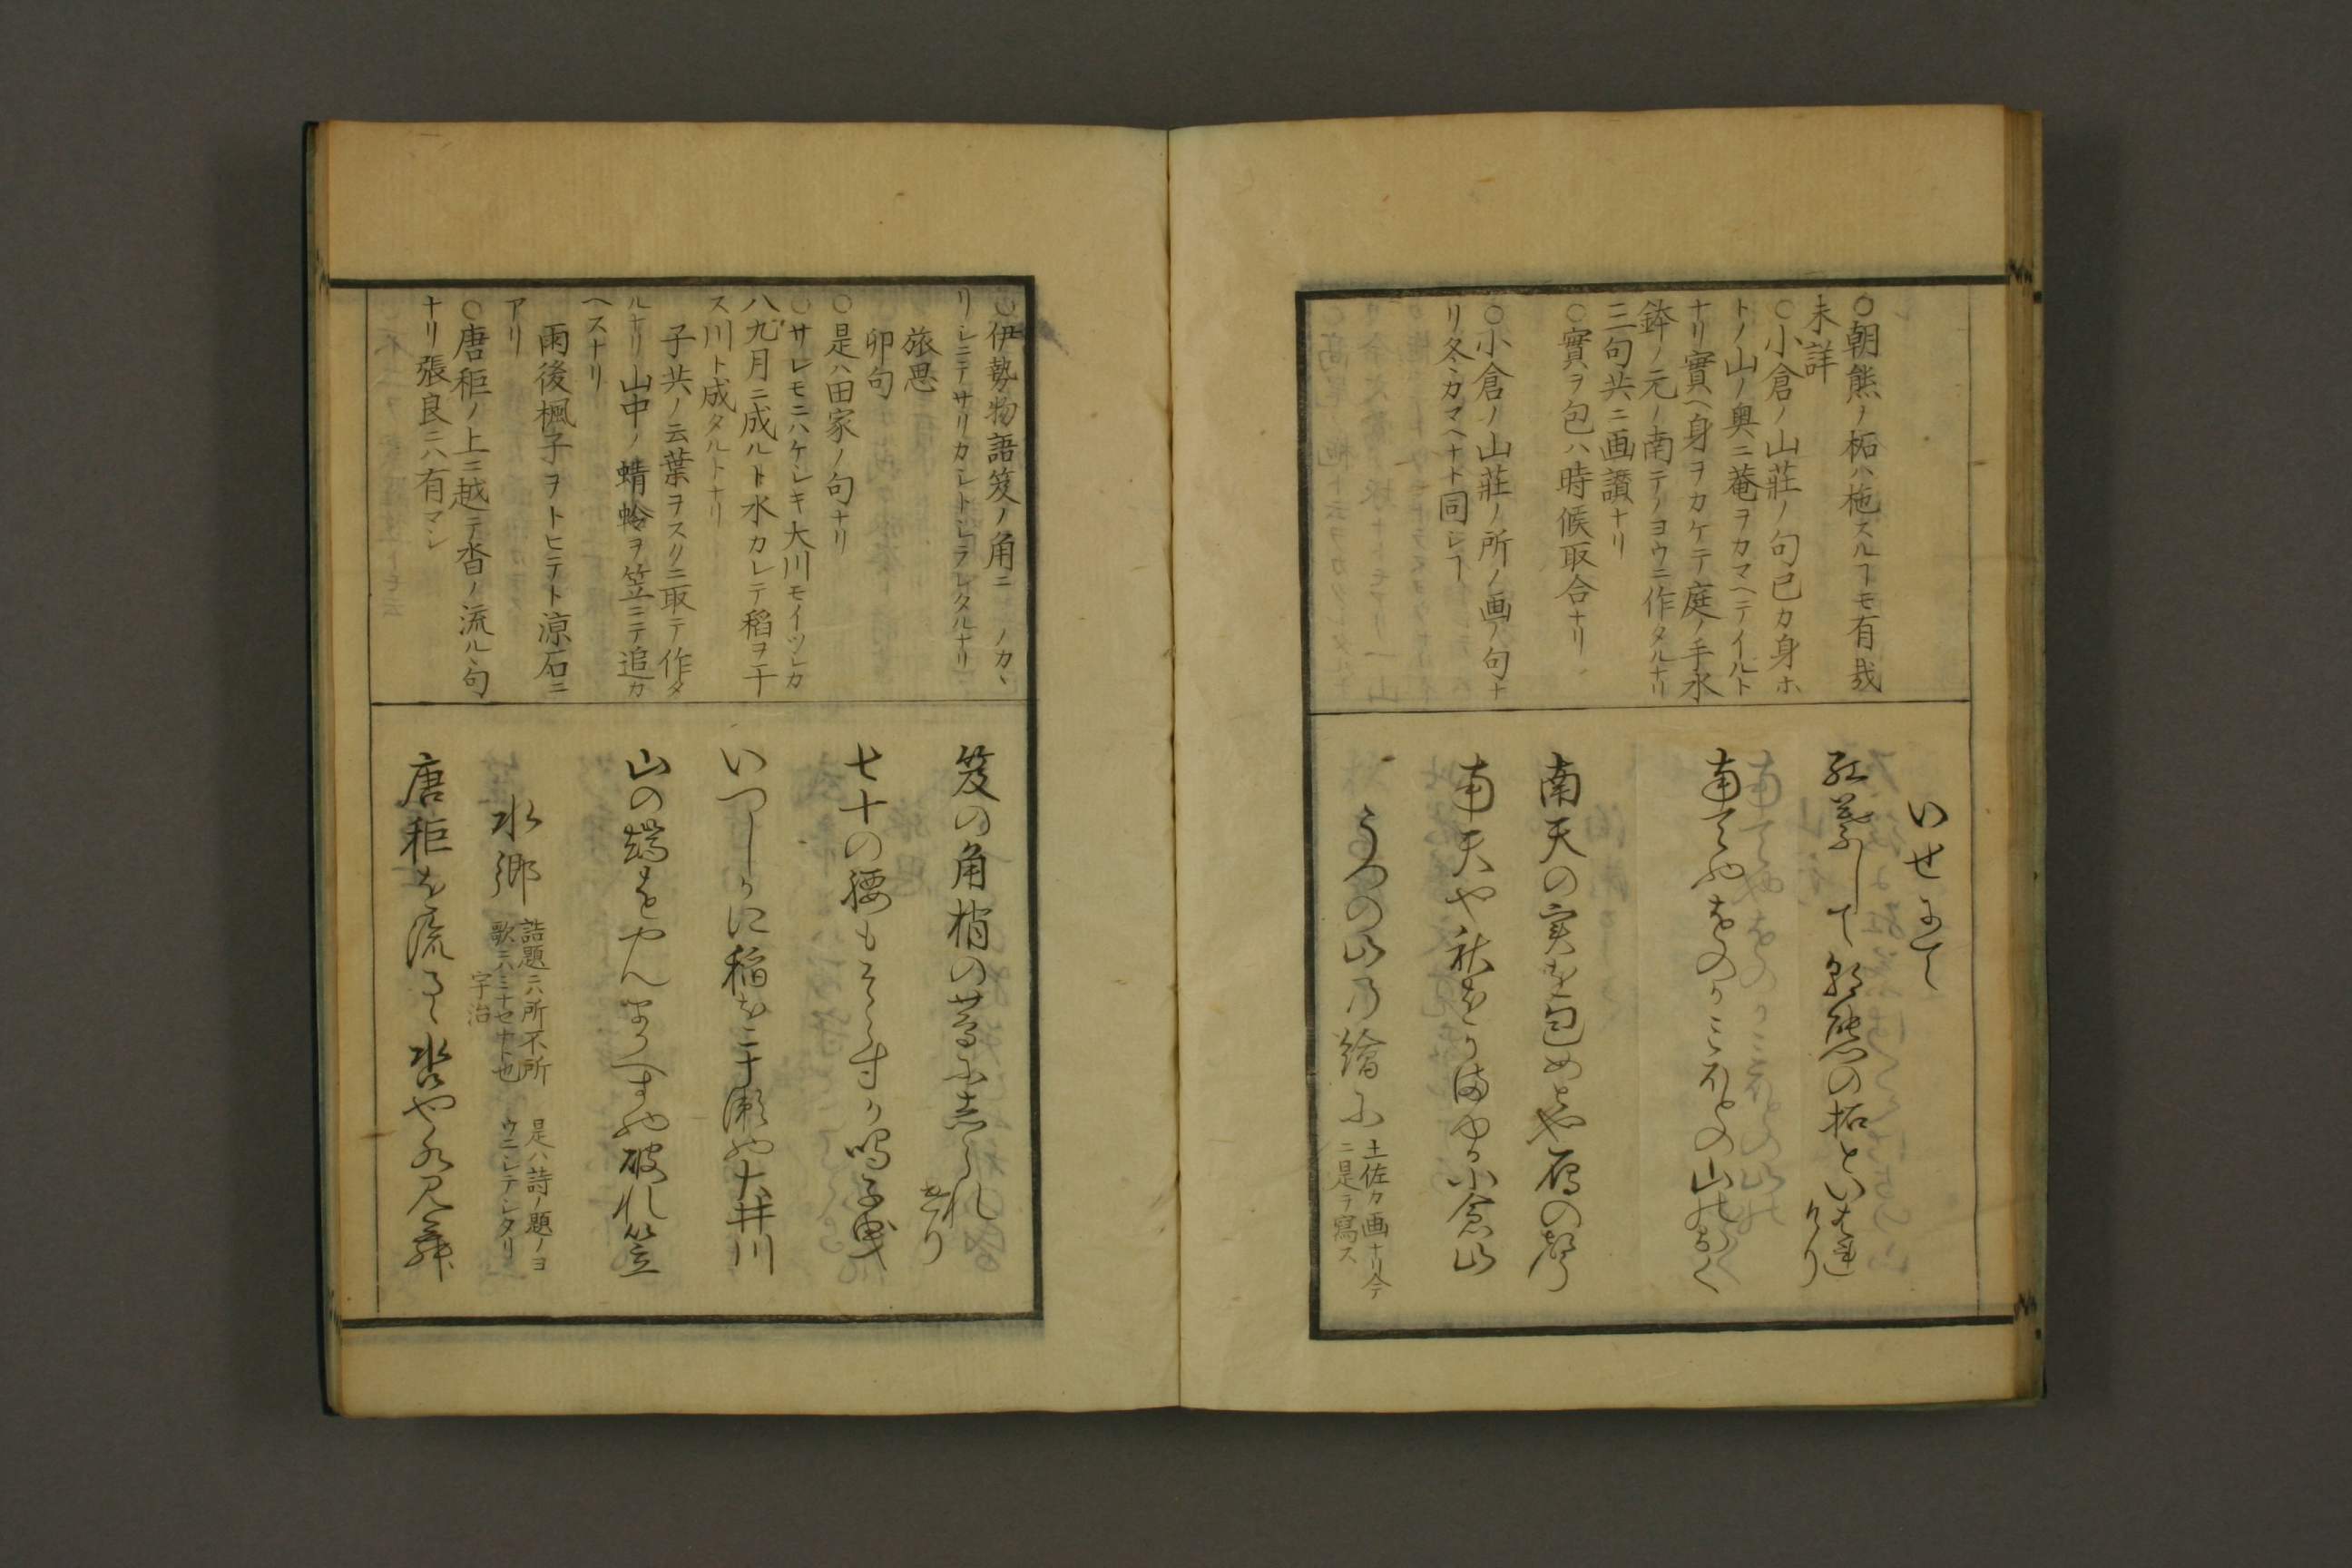 ○朝熊ノ柘ハ柂スルヿモ有哉
未詳
○小倉ノ山莊ノ句己カ身ホ
トノ山ノ奥ニ菴ヲカマヘテイルト
ナリ實ヘ身ヲカケテ庭ノ手水
鉢ノ元ノ南テノヨウニ作タルナリ
三句共ニ画讃ナリ
○實ヲ包ハ時候取合ナリ
○小倉ノ山莊ノ所ノ画ノ句ナ
リ冬ヽカマヘナト同シヿ
いせにて
紅葉して朝熊の柘といはれ
けり
南天やおのかみほとの山のおく
南天の実を包めとや雁の声
南天や秋をかまゆる小倉山
うつの山乃繪に
土佐カ画ナリ今
ニ是ヲ寫ス
○伊勢物語笈ノ角ニ ノカヽ
リシニテサリカシトシラレタルナリ
旅思
卯句
○是ハ田家ノ句ナリ
○サレモニハケシキ大川モイツシカ
八九月ニ成ルト水カレテ稻ヲ干
ス川ト成タルトナリ
子共ノ云葉ヲスクニ取テ作タ
ルナリ山中ノ蜻蛉ヲ笠ニテ追カ
ヘスナリ
雨後楓子ヲトヒテト涼石ニ
アリ
○唐秬ノ上ニ越テ沓ノ流ルヽ句
ナリ張良ニハ有マシ
笈の角梢の蔦にしられ
けり
七十の腰もそらすか鳴子曳
いつしかに稲を干瀬や大井川
山の端をやんまかへすや破れ笠
水郷
詰題ニハ所不所
歌ニハミナセナト也
宇治
是ハ詩ノ題ノヨ
ウニシテシタリ
唐秬を流るゝ沓や水見舞